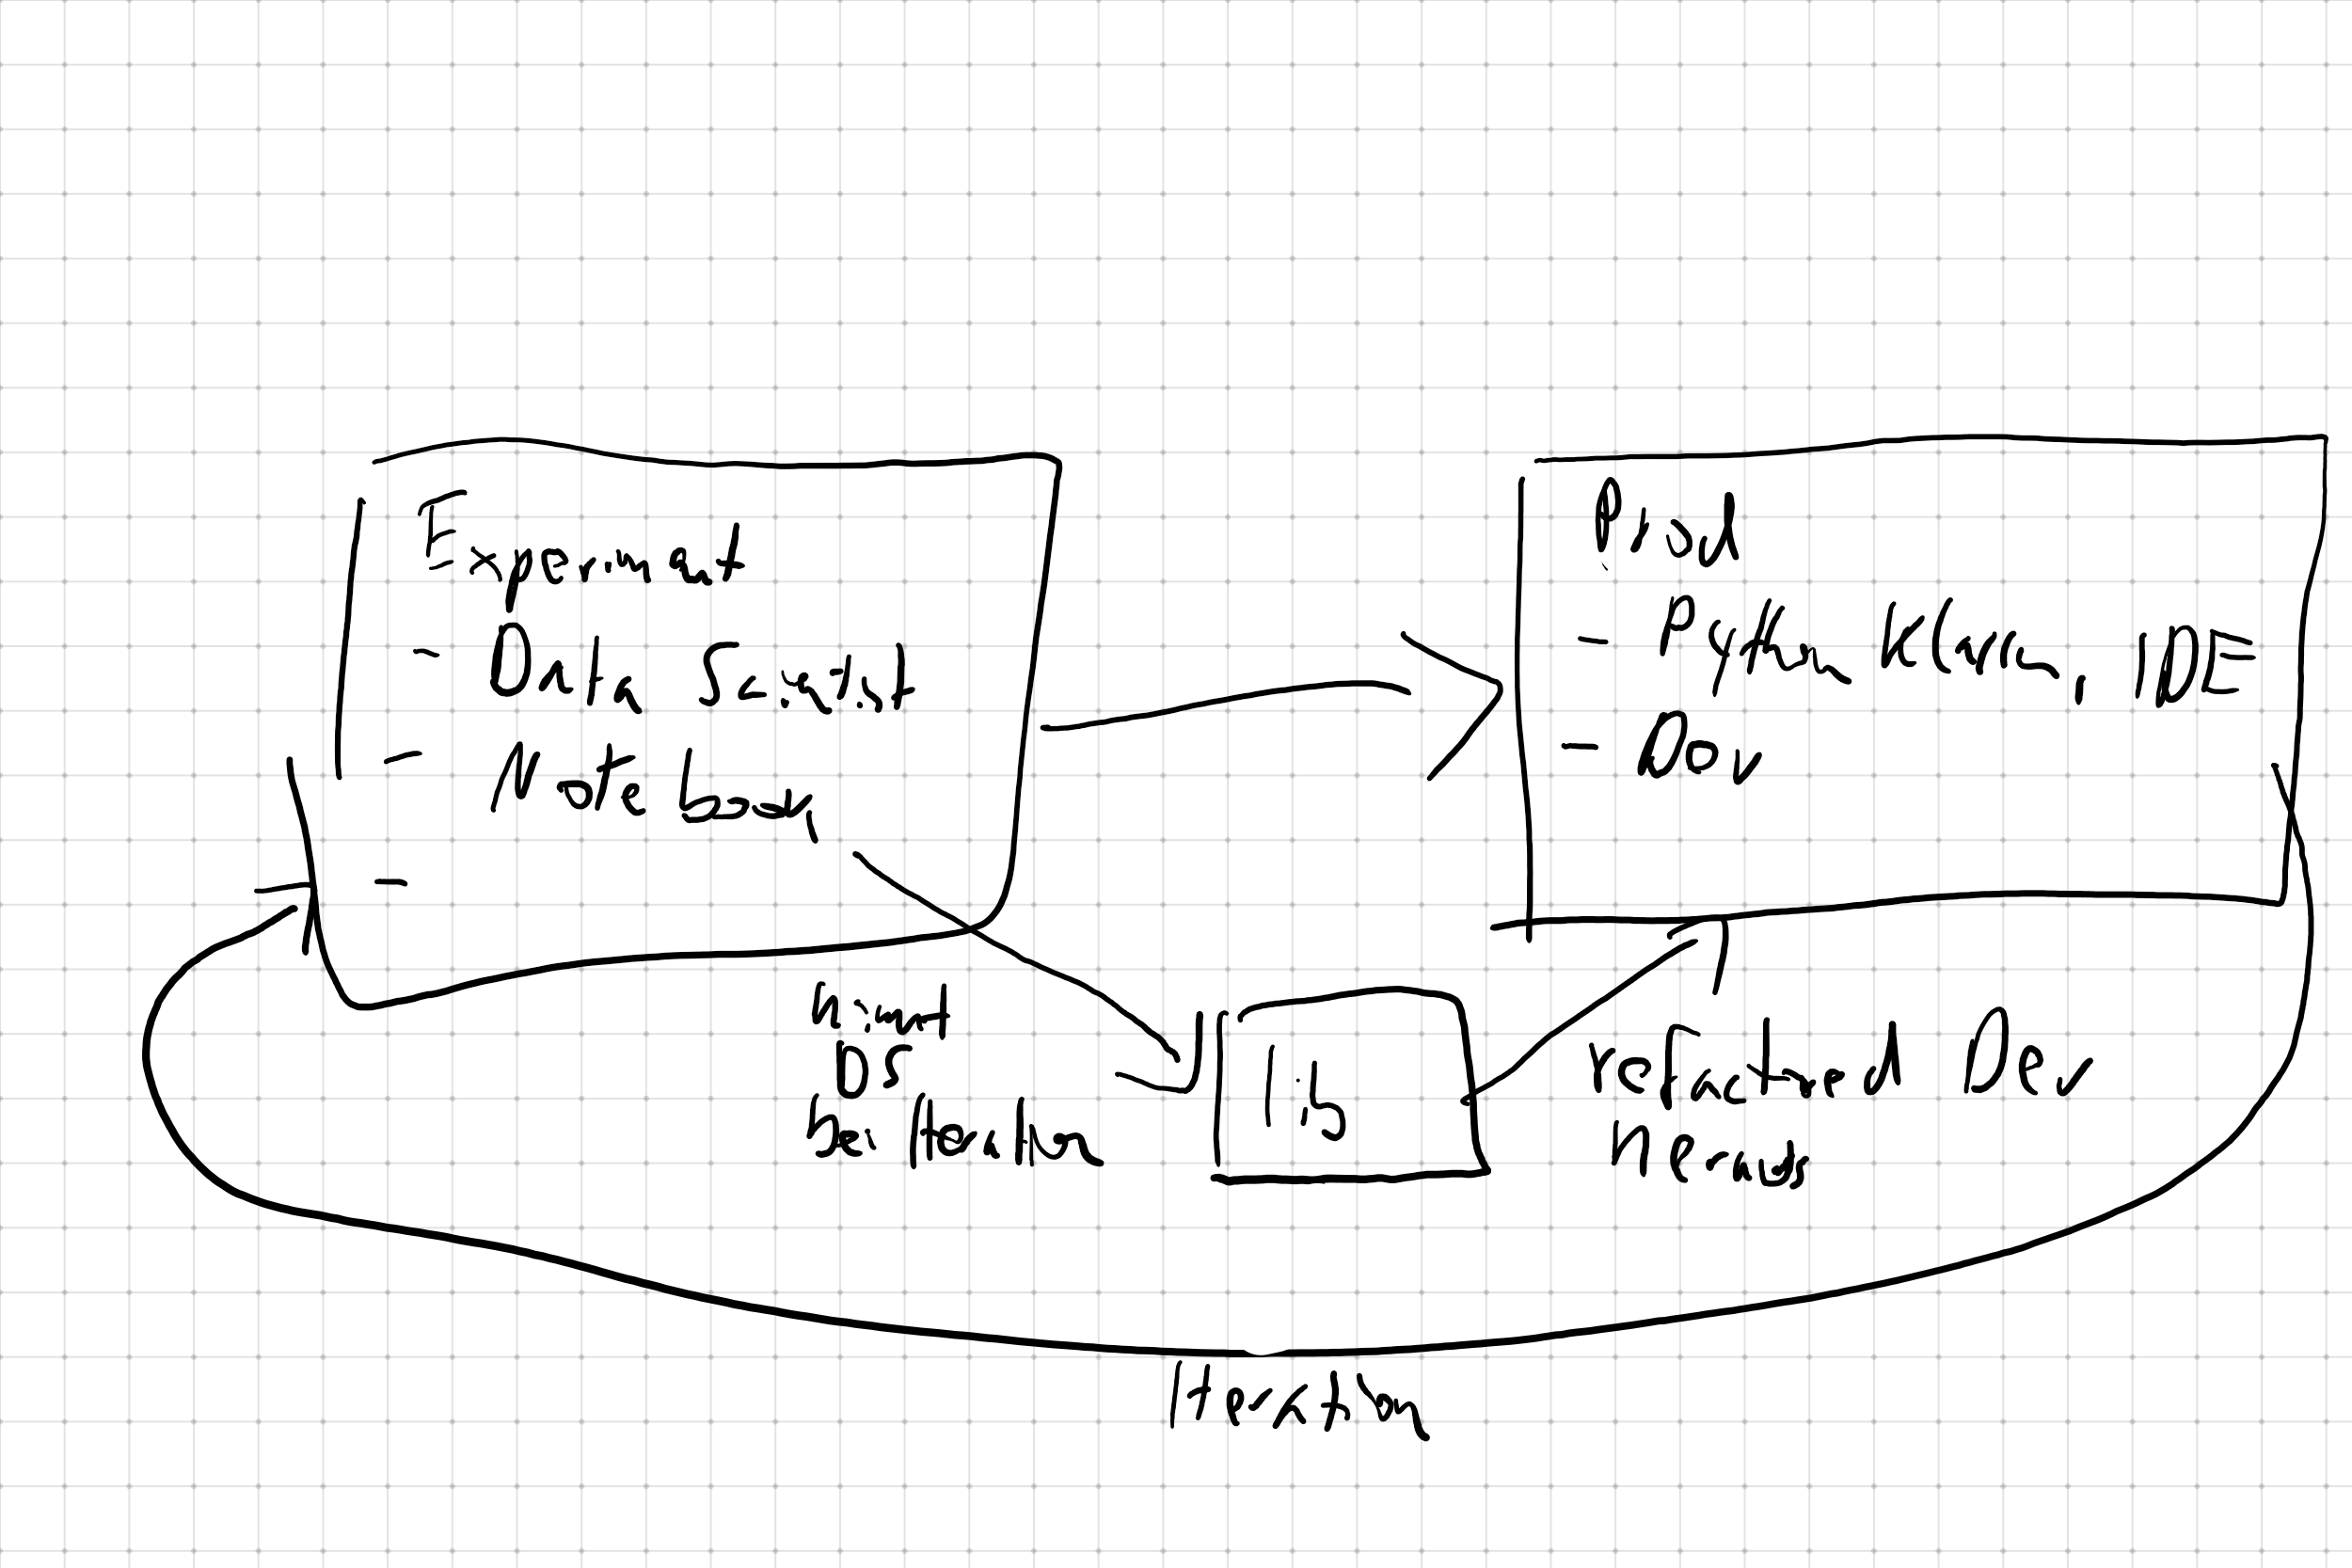 Experiment
- Data Scientist
- Notebook
-
Prod
- Python Klassen, IDE
- Dev
nimmt
DS
bei Iteration
lib
refactored Dev
heraus
Iteration